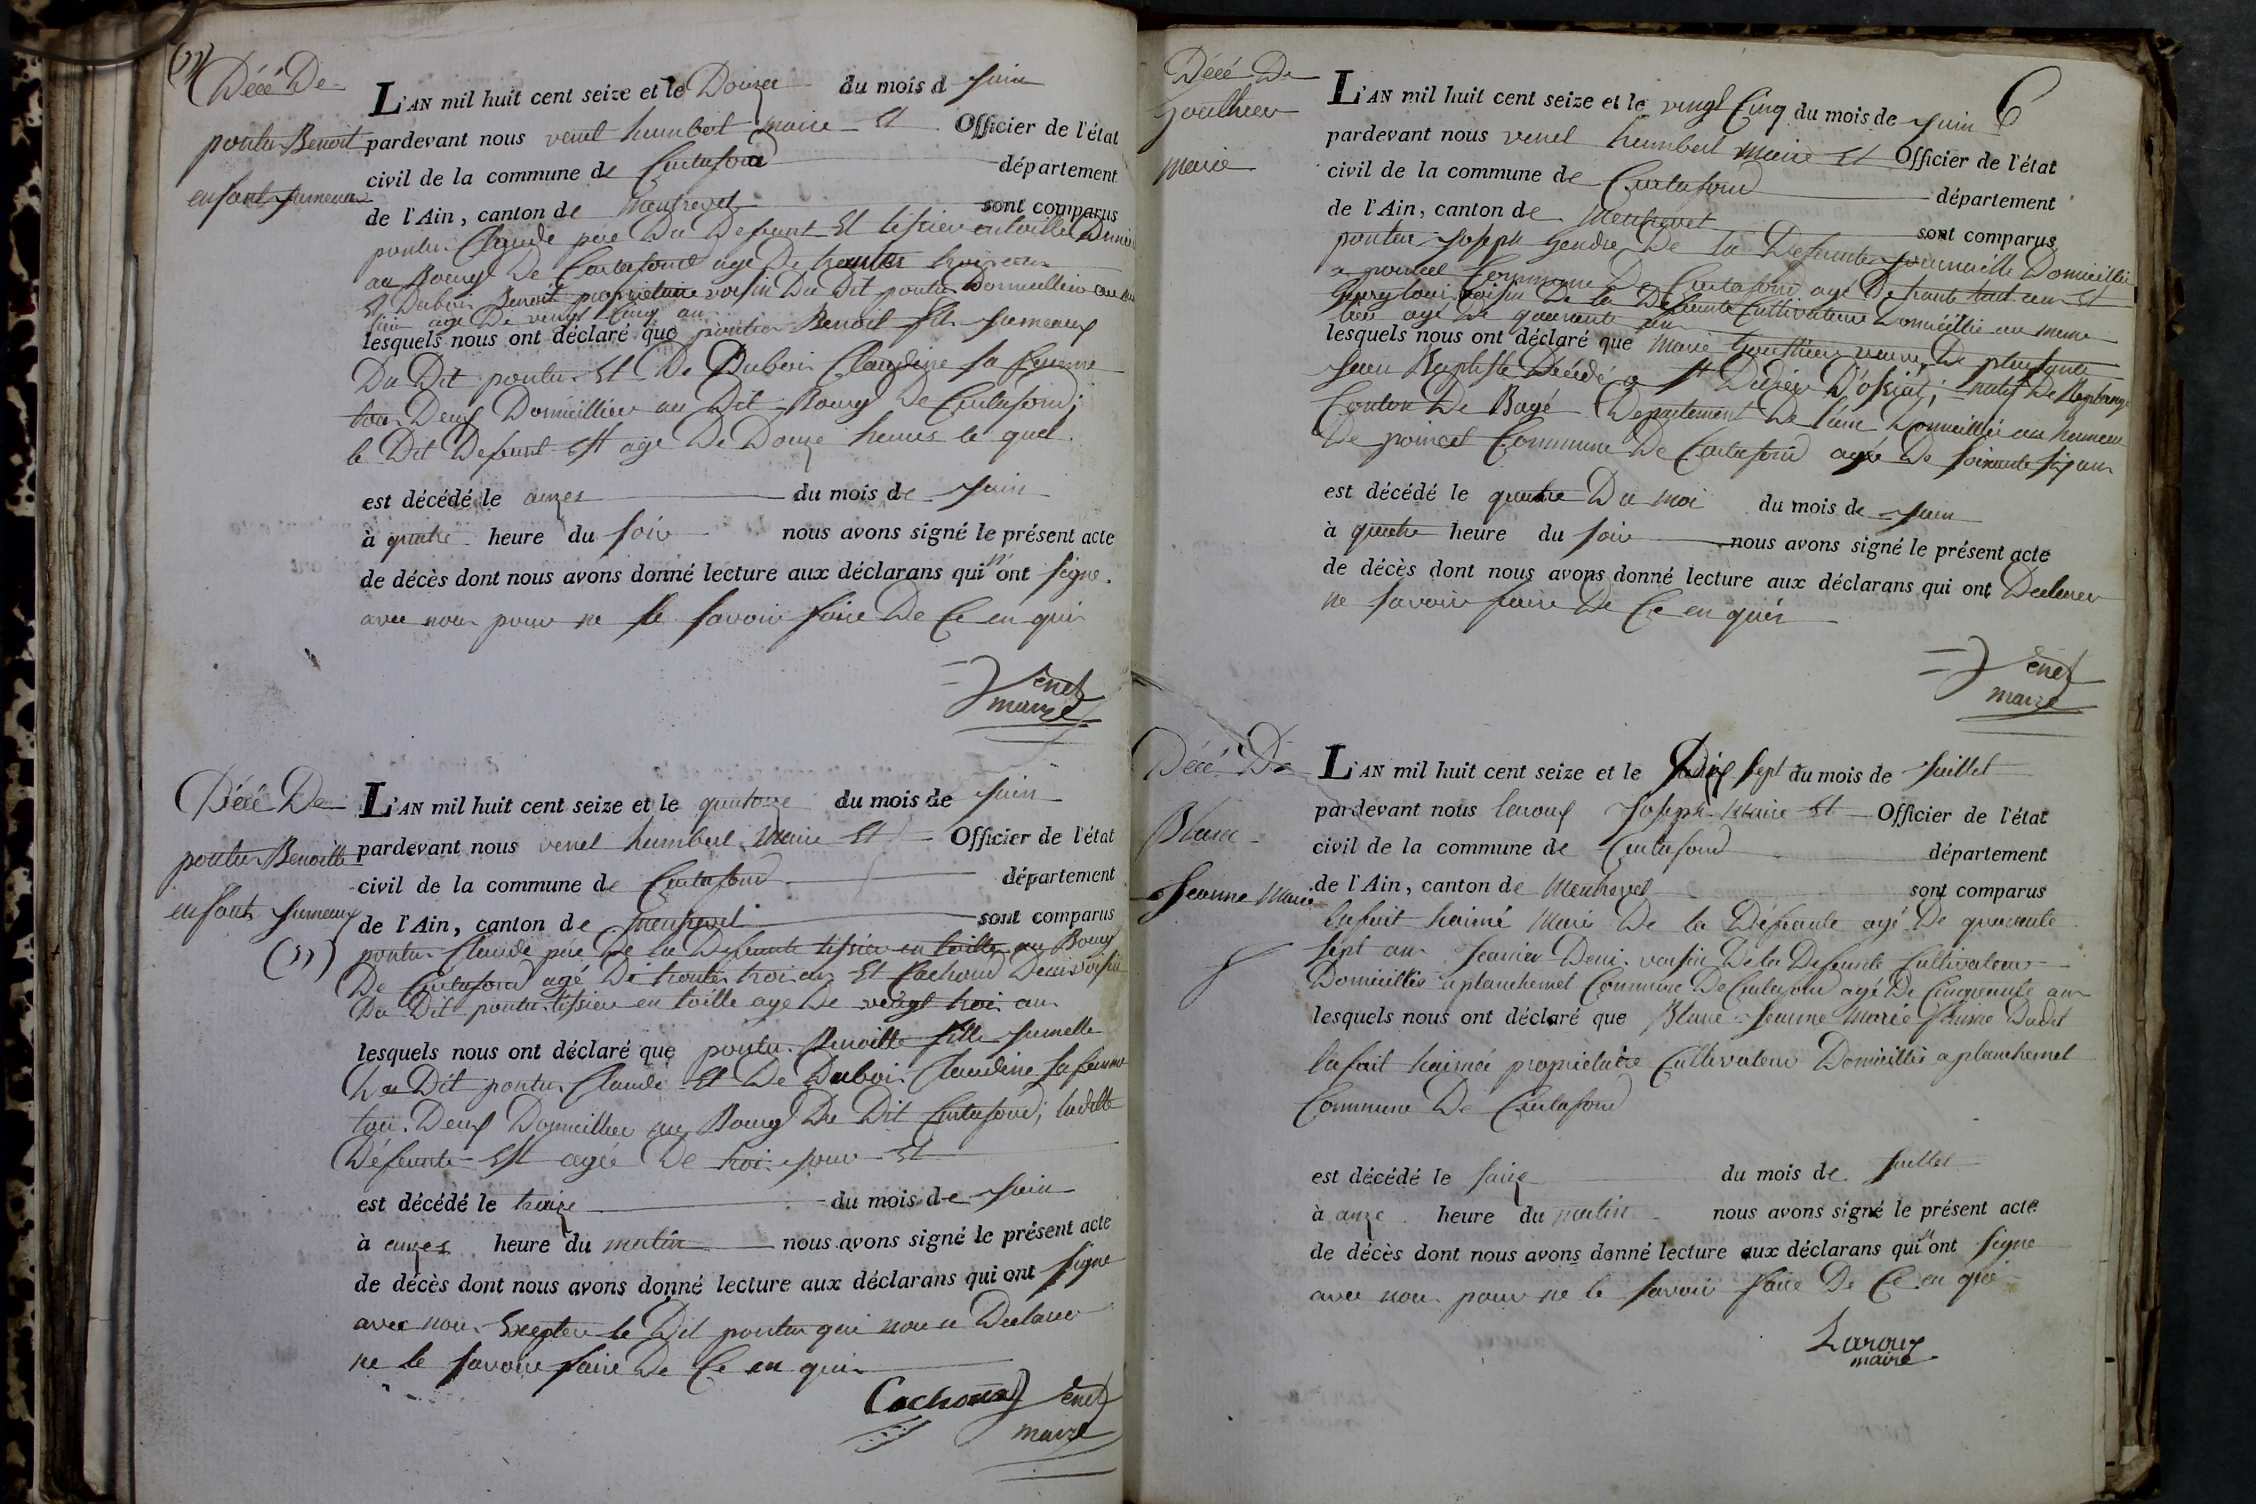 Décé De
pontu Benoit
enfant jumeau
L'AN mil huit cent seize et le Douze du mois d juin
pardevant nous venel humbert maire Et Officier de l'état
civil de la commune de Curtafond département
de l'Ain, canton de Montrevel sont comparus
pontu Claude pere Du Defunt Et tissier en toille
au Bourg De Curtafond agé De trente trois ans
Et Duboi Benoit proprietaire voisin Du Dit pontu Domicillie au
agé De vengt Cinq an
lesquels nous ont déclaré que pontu Benoit fils jumeaux
Du Dit pontu Et De Duboi Claudine sa femme
tou Deux Domicillier au Dit Bourg De Curtafond;
le Dit Defunt Est agé De Douze heures le quel
est décédé le onzes du mois de juin
à quatre heure du soir nous avons signé le présent acte
de décès dont nous avons donné lecture aux déclarans qui n'ont signe
avec nous pour ne le savoir faire De Ce en quis
Venel
maire
Décé De
pontu Benoitte
enfant jumeaux
L'AN mil huit cent seize et le quatorze du mois de juin
pardevant nous venel humbert maire Et Officier de l'état
civil de la commune de Curtafond département
de l'Ain, canton de montrevel sont comparus
pontu Claude pere De la Defunte tissier en toille au Bourg
De Curtafond agé De trente troi ans Et Cachoud Deni voisin
Du Dit pontu tissier en toille age De vengt troi ans
lesquels nous ont déclaré que pontu Benoitte fille jumelle
Du Dit pontu Claude Et De Duboi Claudine sa femme
tou Deux Domicillier au Bourg Du Dit Curtafond; laditte
Défunte Est agée De troi jour Et
est décédé le traize du mois de juin
à onzes heure du matin nous avons signé le présent acte
de décès dont nous avons donné lecture aux déclarans qui ont signe
avec nous Excepter le Dit pontu qui nou a Declarer
ne le savoir faire De Ce en quis
Cachoud Venel
maire
Décé De
Gouthier
marie
L'AN mil huit cent seize et le vengt Cinq du mois de juin 6
pardevant nous venel humbert maire Et Officier de l'état
civil de la commune de Curtafond département
de l'Ain, canton de Montrevel sont comparus
pontu joseph gendre De la Defunte journaille Domicillie
a poincel Commune De Curtafond agé De trante huit ans Et
voisin De la Defunte Cultivateur Domicillie au meme
lieu agé De quarante an
lesquels nous ont déclaré que Marie Gouthier veuve De
jean Baptiste Décédé a St Didier D'ossiat; natif De
Canton De Bagé Departement De l'ain Domicillié au hameau
De poincel Commune De Curtafond agée De soixante six an
est décédé le quatre Du moi du mois de juin
à quatre heure du soir nous avons signé le présent acte
de décès dont nous avons donné lecture aux déclarans qui ont Declarer
ne savoir faire De Ce en quis
Venel
maire
Décé De
Blanc
Jeanne Marie
L'AN mil huit cent seize et le Dix sept du mois de juillet
pardevant nous laroux joseph Maire Et Officier de l'état
civil de la commune de Curtafond département
de l'Ain, canton de Montrevel sont comparus
Mari De la Défunte agé De quarante
sept ans Deni voisin De la Defunte Cultivateur
Domicillie a planchemel Commune De Curtafond agé De Cinquante ans
lesquels nous ont déclaré que Blanc Jeanne Marie femme Dudit
proprietaire Cultivateur Domicillie a planchemel
Commune De Curtafond
est décédé le saize du mois de juillet
à onze heure du matin nous avons signé le présent acte
de décès dont nous avons donné lecture aux déclarans qui n'ont signe
avec nous pour ne le savoir faire De Ce en qui
Laroux
maire